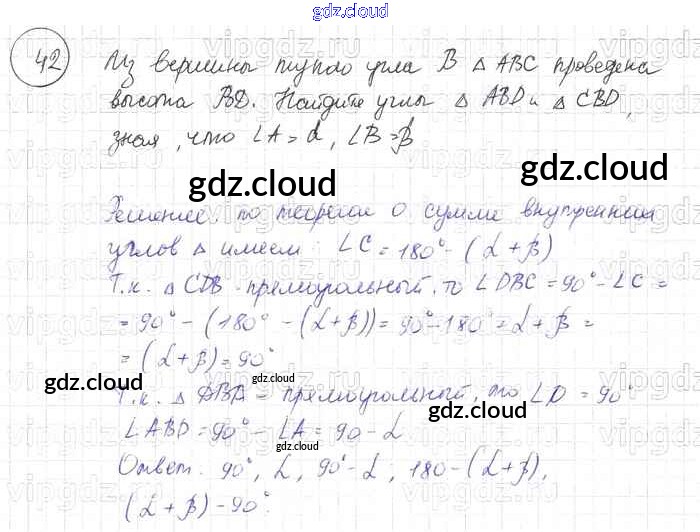 gdz.cloud
42 Из вершины тупого угла B △ ABC проведена
высота BD. Найдите углы △ ABD и △ CBD,
зная, что ∠A = α, ∠B = β
gdz.cloud
gdz.cloud
Решение: по теореме о сумме внутренних
углов △ имеем: ∠C = 180° - (α + β)
Т.к. △ CDB - прямоугольный, то ∠DBC = 90° - ∠C =
= 90° - (180° - (α + β)) = 90° - 180° = α + β =
= (α + β) = 90°
gdz.cloud
gdz.cloud
Т.к. △ DBA - прямоугольный, то ∠D = 90°
gdz.cloud
∠ABD = 90° - ∠A = 90 - α
gdz.cloud
Ответ: 90°, α, 90° - α; 180 - (α + β),
(α + β) - 90°.
gdz.cloud
vipgdz.ru